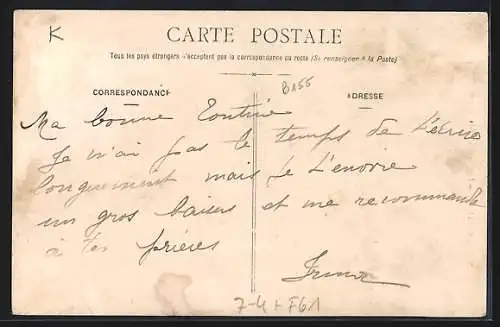 K
CARTE POSTALE
Tous les pays étrangers n'acceptent pas la correspondance au recto (Se renseigner à la Poste)
B155
CORRESPONDANCE
ADRESSE
Ma bonne
Je n'ai pas le temps de t'écrire
longuement mais je t'envoie
un gros baiser et me recommande
à tes prières
Irma
7-4+F61